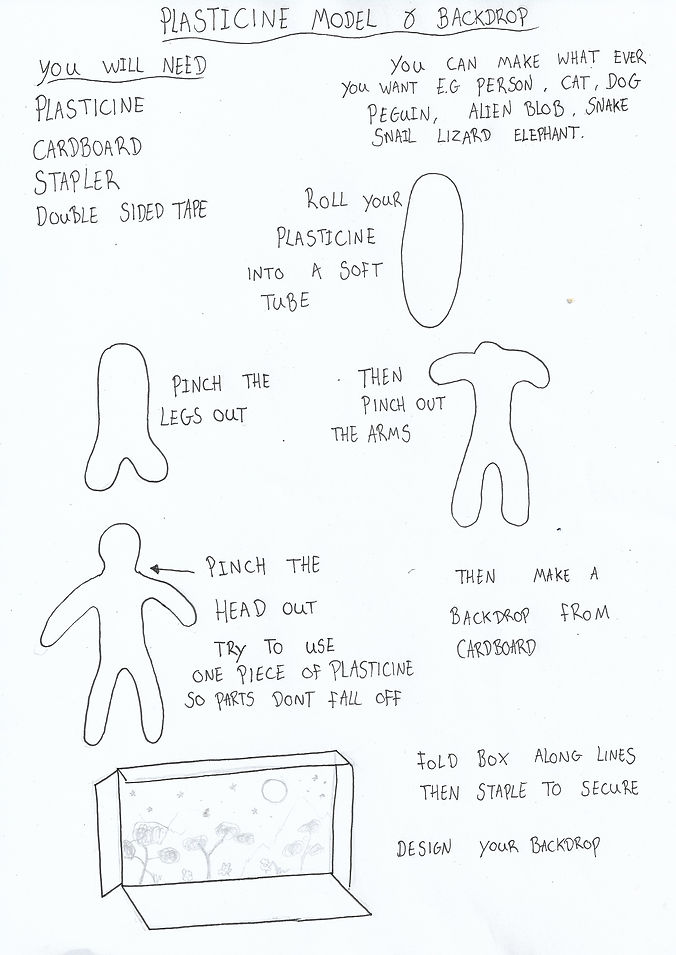 PLASTICINE MODEL & BACKDROP
YOU WILL NEED
PLASTICINE
CARDBOARD
STAPLER
DOUBLE SIDED TAPE
YOU CAN MAKE WHAT EVER
YOU WANT E.G PERSON, CAT, DOG
PEGUIN, ALIEN BLOB, SNAKE
SNAIL LIZARD ELEPHANT.
ROLL YOUR
PLASTICINE
INTO A SOFT
TUBE
PINCH THE
LEGS OUT
THEN
PINCH OUT
THE ARMS
PINCH THE
HEAD OUT
TRY TO USE
ONE PIECE OF PLASTICINE
SO PARTS DONT FALL OFF
THEN MAKE A
BACKDROP FROM
CARDBOARD
FOLD BOX ALONG LINES
THEN STAPLE TO SECURE
DESIGN YOUR BACKDROP